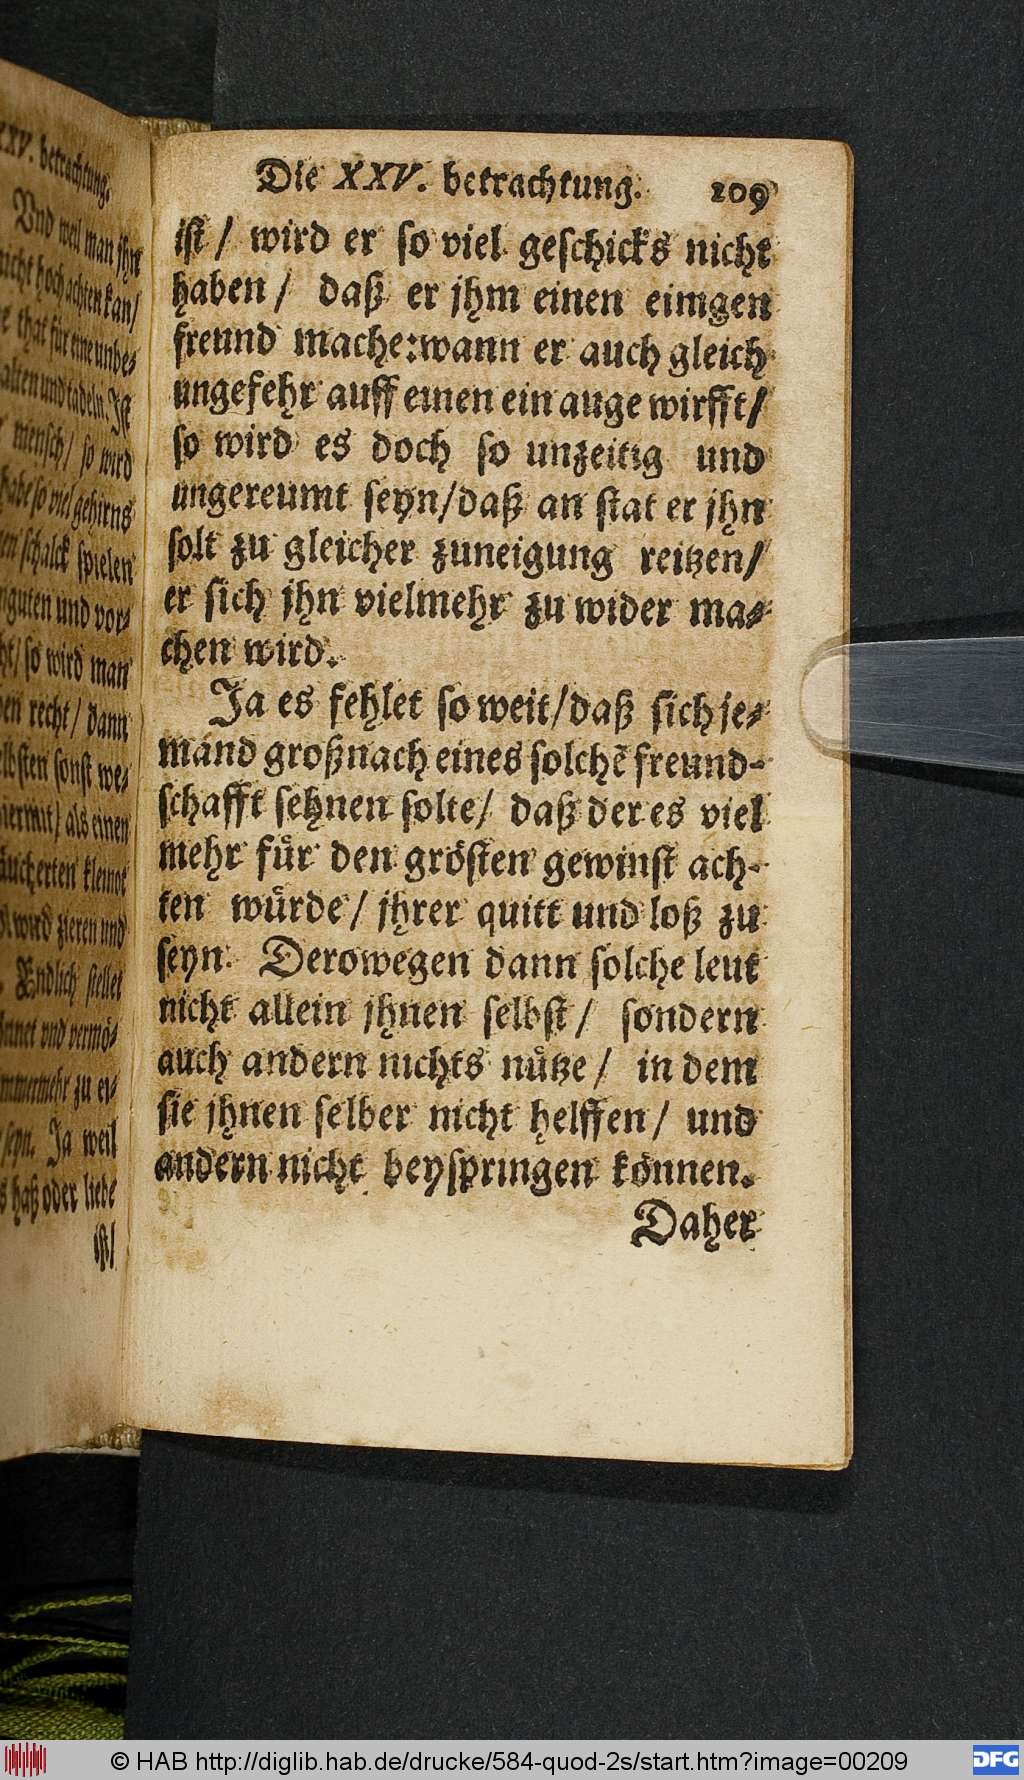 XXV. betrachtung.
Und weil man jhn
nicht hoch achten kan/
that für eine unbe⸗
alten und tadeln. Jſt
menſch/ ſo wird
habe ſo viel gehirns
ſchalck ſpielen
guten und vor⸗
ſo wird man
recht/ dann
ſonſt we⸗
als einen
kleinot
wird zieren und
Endlich ſtellet
und vermö⸗
zu er⸗
ſeyn. Ja weil
haß oder liebe
iſt/
Die XXV. betrachtung. 209
iſt/ wird er ſo viel geſchicks nicht
haben/ daß er jhm einen einigen
freund mache: wann er auch gleich
ungefehr auff einen ein auge wirfft/
ſo wird es doch ſo unzeitig und
ungereumt ſeyn/ daß an ſtat er jhn
ſolt zu gleicher zuneigung reitzen/
er ſich jhn vielmehr zu wider ma⸗
chen wird.
Ja es fehlet ſo weit/ daß ſich je⸗
mand groß nach eines ſolchẽ freund⸗
ſchafft ſehnen ſolte/ daß der es viel
mehr für den gröſten gewinſt ach⸗
ten würde/ jhrer quitt und loß zu
ſeyn. Derowegen dann ſolche leut
nicht allein jhnen ſelbſt/ ſondern
auch andern nichts nütze/ in dem
ſie jhnen ſelber nicht helffen/ und
andern nicht beyſpringen können.
Daher
© HAB http://diglib.hab.de/drucke/584-quod-2s/start.htm?image=00209
DFG